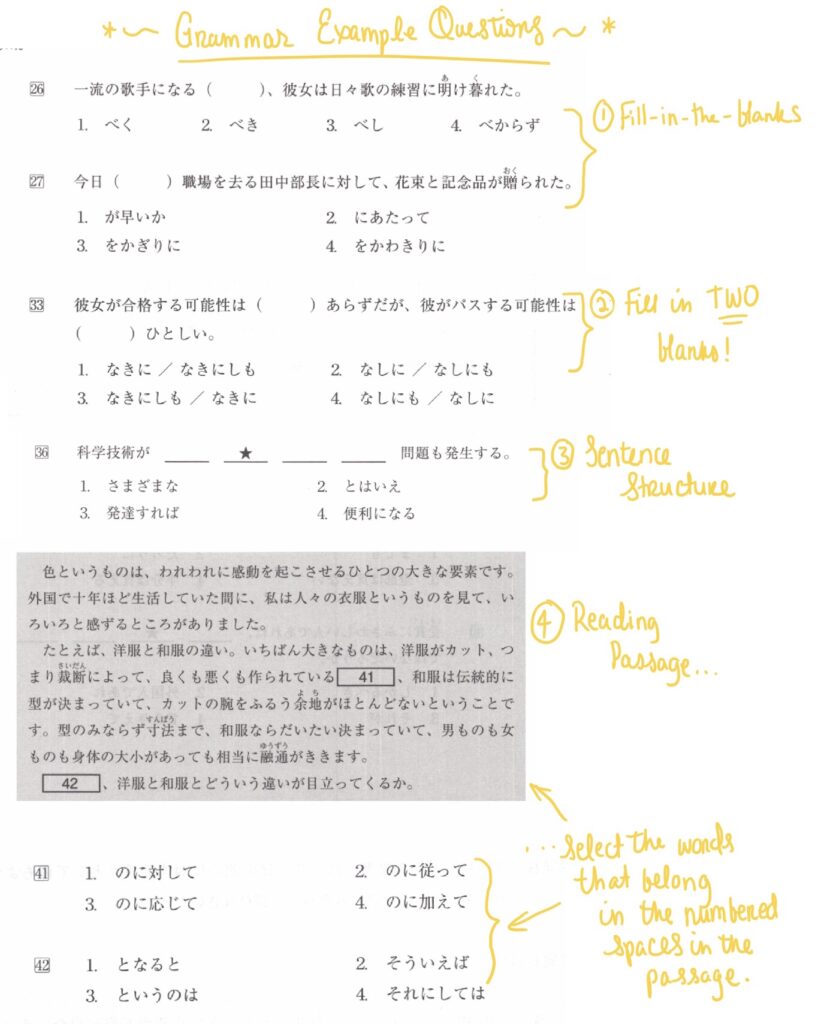 *~ Grammar Example Questions ~ *
26 一流の歌手になる(　　)、彼女は日々歌の練習に明け暮れた。
1. べく 2. べき 3. べし 4. べからず
① Fill-in-the-blanks
27 今日(　　)職場を去る田中部長に対して、花束と記念品が贈られた。
1. が早いか 2. にあたって
3. をかぎりに 4. をかわきりに
33 彼女が合格する可能性は(　　)あらずだが、彼がパスする可能性は
(　　)ひとしい。
② Fill in TWO
blanks!
1. なきに / なきにしも 2. なしに / なしにも
3. なきにしも / なきに 4. なしにも / なしに
36 科学技術が ____ __★__ ____ ____ 問題も発生する。
1. さまざまな 2. とはいえ
3. 発達すれば 4. 便利になる
③ Sentence
Structure
色というものは、われわれに感動を起こさせるひとつの大きな要素です。
外国で十年ほど生活していた間に、私は人々の衣服というものを見て、い
ろいろと感ずるところがありました。
たとえば、洋服と和服の違い。いちばん大きなものは、洋服がカット、つ
まり裁断によって、良くも悪くも作られている 41 、和服は伝統的に
型が決まっていて、カットの腕をふるう余地がほとんどないということで
す。型のみならず寸法まで、和服ならだいたい決まっていて、男ものも女
ものも身体の大小があっても相当に融通がききます。
42 、洋服と和服とどういう違いが目立ってくるか。
④ Reading
Passage...
41 1. のに対して 2. のに従って
3. のに応じて 4. のに加えて
42 1. となると 2. そういえば
3. というのは 4. それにしては
...select the words
that belong
in the numbered
spaces in the
passage.